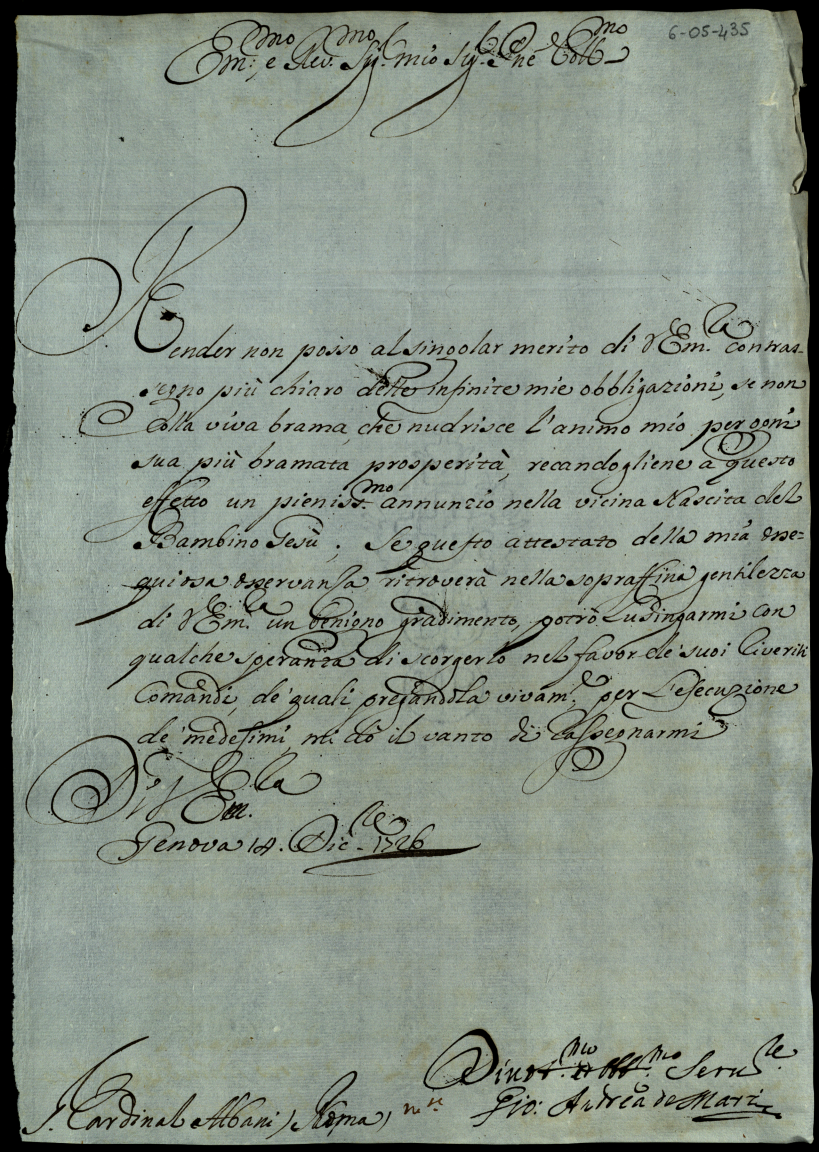 6-05-435
Em.mo e Rev.mo Sig.r mio Sig.r P.ne Coll.mo
Render non posso al singolar merito di V Em.za contras-
segno più chiaro delle infinite mie obbligazioni, se non
colla viva brama, che nudrisce l'animo mio per ogni
sua più bramata prosperità, recandogliene a questo
effetto un pieniss.mo annunzio nella vicina Nascita del
Bambino Gesù; Se questo attestato della mia osse-
quiosa osservanza ritroverà nella sopraffina gentilezza
di V Em.za un benigno gradimento, potrò Lusingarmi con
qualche speranza di scorgerlo nel favor de' suoi riveriti
Comandi, de' quali pregandola vivam.te per L'esecuzione
de' medesimi, mi dò il vanto di rassegnarmi
Di V Em.za
Genova 14. Dic.re 1726
Divot.mo et Obb.mo Seru.re
Gio: Andrea de Mari
S. Cardinal Albani) Roma)